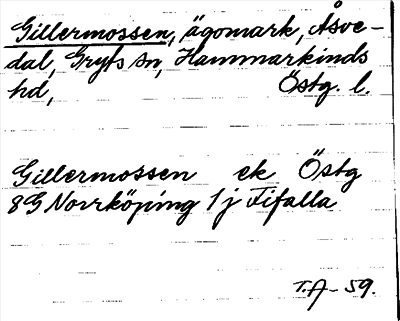 Gillermossen, ägomark, Åsve-
dal, Gryts sn, Hammarkinds
hd, Östg. l.
Gillermossen ek Östg
8G Norrköping 1j Fifalla
T.A- 59.